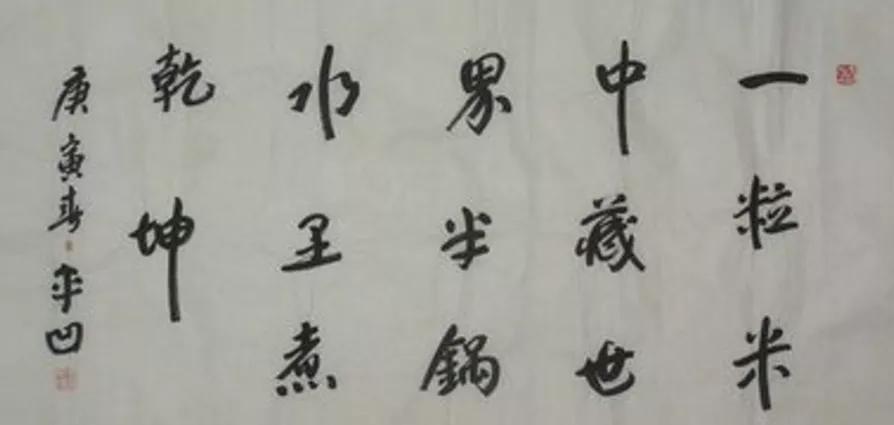 一粒米
中藏世
界半鍋
水里煮
乾坤
庚寅春平凹